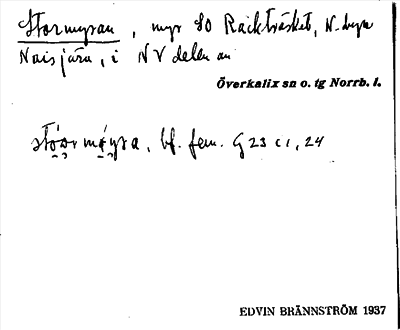 Stormyran, myr SO Räktträsket, N. byn
Naisjärv, i NV delen av
Överkalix sn o. tg Norrb. l.
stóor mýra, bf. fem. G 23 c 1, 24
EDVIN BRÄNNSTRÖM 1937